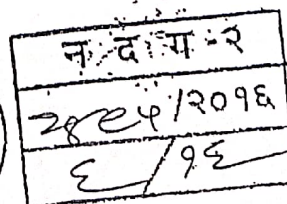 न द य - २
२४८५/२०१६
६/१६